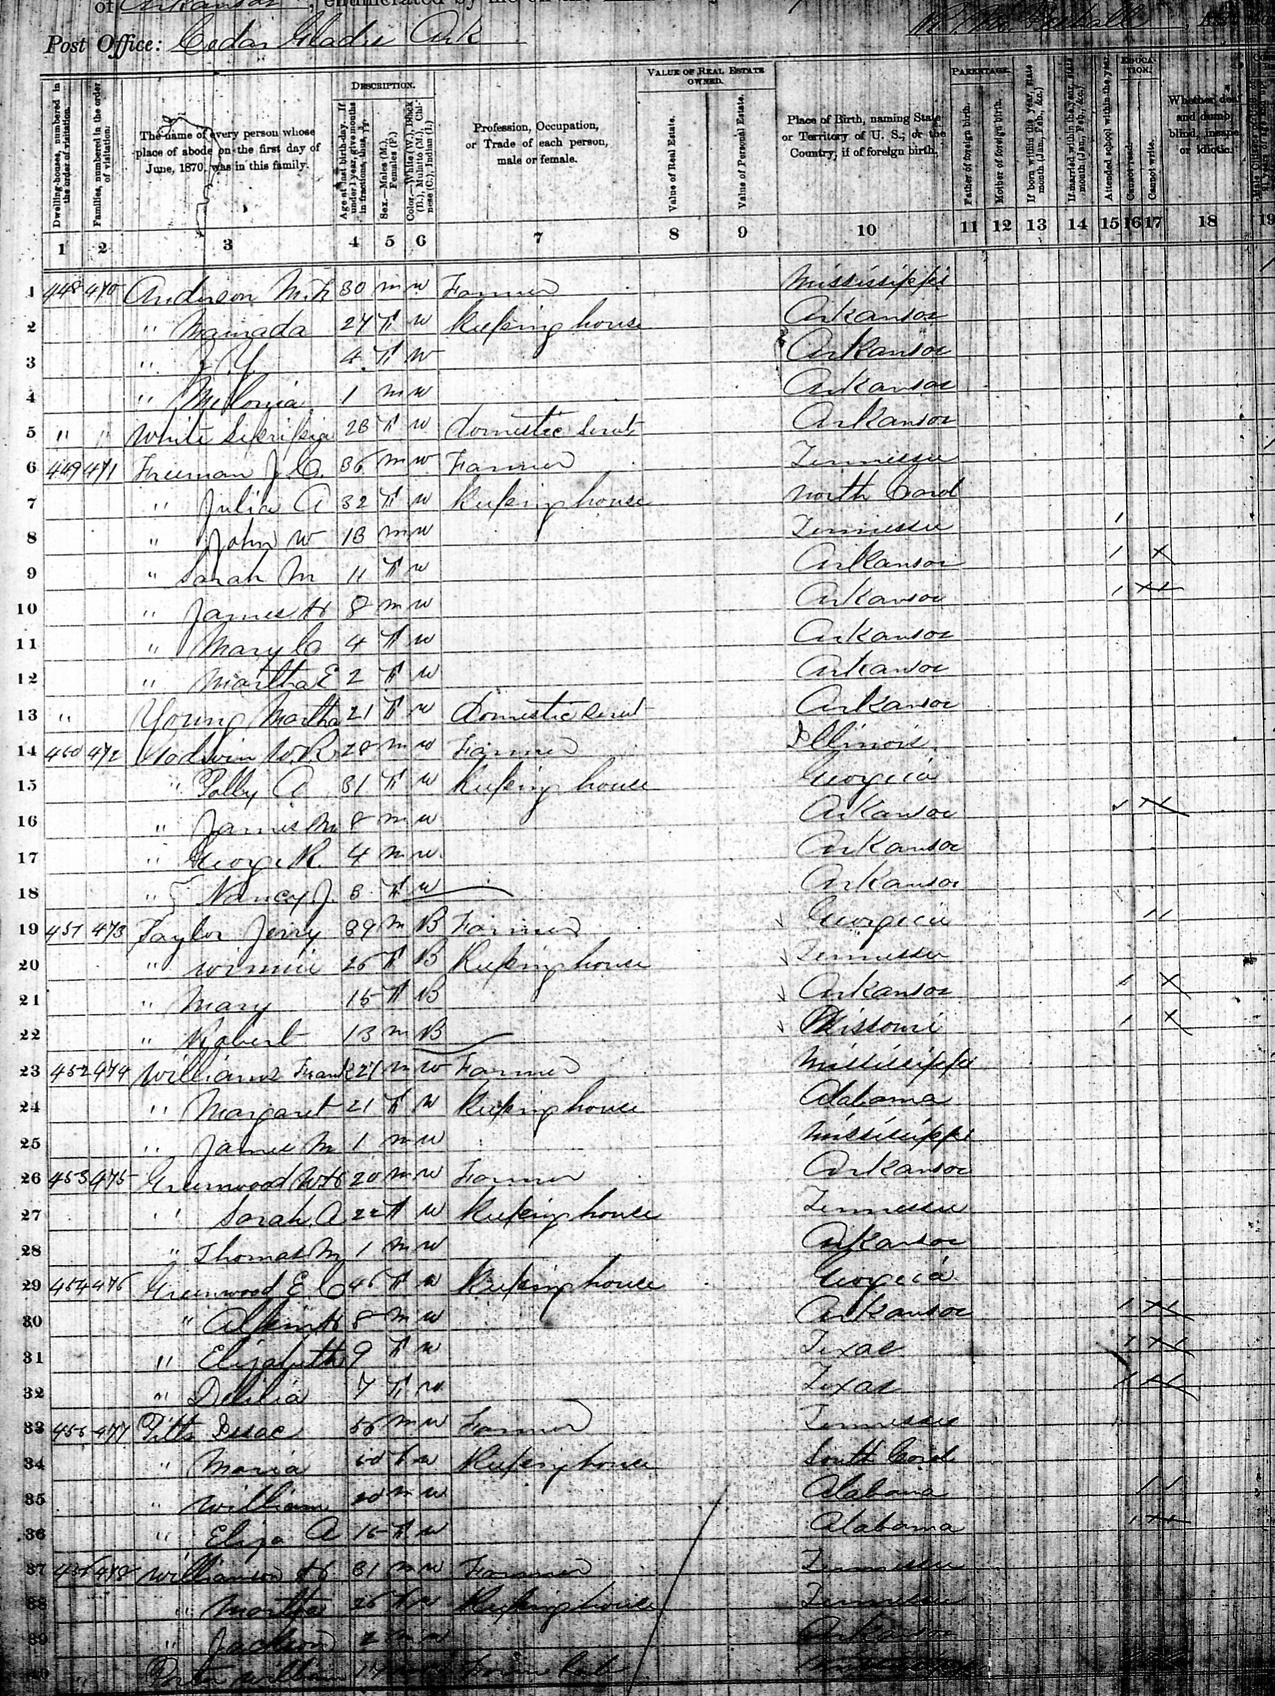 of Arkansas, enumerated by me on the
Post Office: Cedar Glades Ark
Dwelling-houses, numbered in the order of visitation.
Families, numbered in the order of visitation.
The name of every person whose place of abode on the first day of June, 1870, was in this family.
DESCRIPTION.
Age at last birth-day. If under 1 year, give months in fractions, thus,
Sex.—Males (M.), Females (F.)
Color.—White (W.), Black (B.), Mulatto (M.), Chinese (C.), Indian (I.)
Profession, Occupation, or Trade of each person, male or female.
VALUE OF REAL ESTATE OWNED.
Value of Real Estate.
Value of Personal Estate.
Place of Birth, naming State or Territory of U. S.; or the Country, if of foreign birth.
PARENTAGE.
Father of foreign birth.
Mother of foreign birth.
If born within the year, state month (Jan., Feb., &c.)
If married within the year, state month (Jan., Feb., &c.)
Attended school within the year.
EDUCATION.
Cannot read.
Cannot write.
Whether deaf and dumb, blind, insane, or idiotic.
1 2 3 4 5 6 7 8 9 10 11 12 13 14 15 16 17 18 19
1 448 470 Anderson M. 30 m w Farmer Mississippi
2 " 27 F w Keeping house Arkansas
3 " 4 F w Arkansas
4 " 1 m w Arkansas
5 " " White 28 F w domestic Servt Arkansas
6 449 471 Freeman J. C. 36 m w Farmer Tennessee
7 " Julia A 32 F w Keeping house North Carol
8 " John W 13 m w Tennessee 1
9 " Sarah M 11 F w Arkansas 1 x
10 " James H 8 m w Arkansas 1 x x
11 " Mary C 4 F w Arkansas
12 " Martha E 2 F w Arkansas
13 " Young Martha 21 F w Domestic Servt Arkansas
14 450 472 Godwin W. R 28 m w Farmer Illinois
15 " Polly A 31 F w Keeping house Georgia
16 " James M 8 m w Arkansas
17 " George R. 4 m w Arkansas
18 " Nancy J. 3 F w Arkansas
19 451 473 Taylor Jerry 39 m B Farmer Georgia 1 1
20 " Winnie 25 F B Keeping house Tennessee
21 " Mary 15 F B Arkansas 1 x
22 " Robert 13 m B Missouri 1 x
23 452 474 Williams Frank 27 m w Farmer Mississippi
24 " Margaret 21 F w Keeping house Alabama
25 " James M 1 m w Mississippi
26 453 475 Greenwood W H 20 m w Farmer Arkansas
27 " Sarah A 22 F w Keeping house Tennessee
28 " Thomas M 1 m w Arkansas
29 454 476 Greenwood E. C 46 F w Keeping house Georgia
30 " 8 m w Arkansas 1 x x
31 " Elizabeth 9 F w Texas 1 x x
32 " Delilia 7 F w Texas 1 x x
33 455 477 Pitts Isaac 56 m w Farmer Tennessee
34 " Maria F w Keeping house South Carol
35 " William 20 m w Alabama 1 1
36 " Eliza A 15 F w Alabama 1 x x
37 456 478 Williamson H 31 m w Farmer Tennessee
38 " Martha 26 F w Keeping house Tennessee
39 " Jackson 2 m w Arkansas
40 William